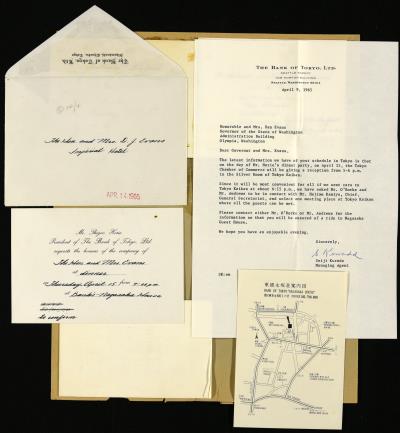 The Bank of Tokyo, Ltd.
The Hon and Mrs. D J Evans
Imperial Hotel
APR 14 1965
Mr. Shigeo Horie
President of The Bank of Tokyo, Ltd
requests the honour of the company of
The Hon and Mrs. Evans
at dinner
Thursday April 15 from
at Bank's Nagasaka House
to confirm
THE BANK OF TOKYO, LTD.
SEATTLE AGENCY
SEATTLE, WASHINGTON
April 9, 1965
Honorable and Mrs. Dan Evans
Governor of the State of Washington
Administration Building
Olympia, Washington
Dear Governor and Mrs. Evans,
The latest information we have of your schedule in Tokyo is that
on the day of Mr. Horie's dinner party, on April 15, the Tokyo
Chamber of Commerce will be giving a reception from 5-6 p.m.
in the Silver Room of Tokyo Kaikan.
Since it will be most convenient for all if we send cars to
Tokyo Kaikan at about 6:15 p.m. we have asked Mr. O'Rorke and
Mr. Andrews to be in contact with Mr. Hajime Kamiya, Chief,
General Secretariat, and select one meeting place at Tokyo Kaikan
where all the guests can be met.
Please contact either Mr. O'Rorke or Mr. Andrews for the
information so that you will be assured of a ride to Nagasaka
Guest House.
We hope you have an enjoyable evening.
Sincerely,
S Kuroda
Seiji Kuroda
Managing Agent
BANK OF TOKYO "NAGASAKA HOUSE"